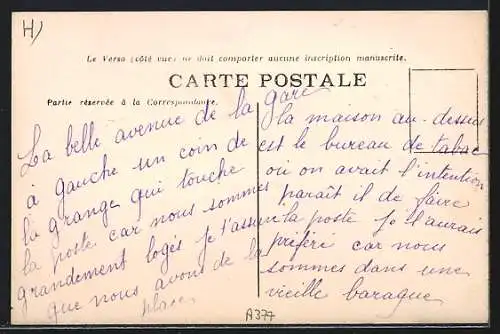 H)
Le Verso (côté vue) ne doit comporter aucune inscription manuscrite.
CARTE POSTALE
Partie réservée à la Correspondance.
La belle avenue de la gare
à gauche un coin de
la grange qui touche
la poste car nous sommes
grandement logés je t'assure
que nous avons de la
place
la maison au-dessus
est le bureau de tabac
où on avait l'intention
paraît il de faire
la poste je l'aurais
préféré car nous
sommes dans une
vieille baraque
A377